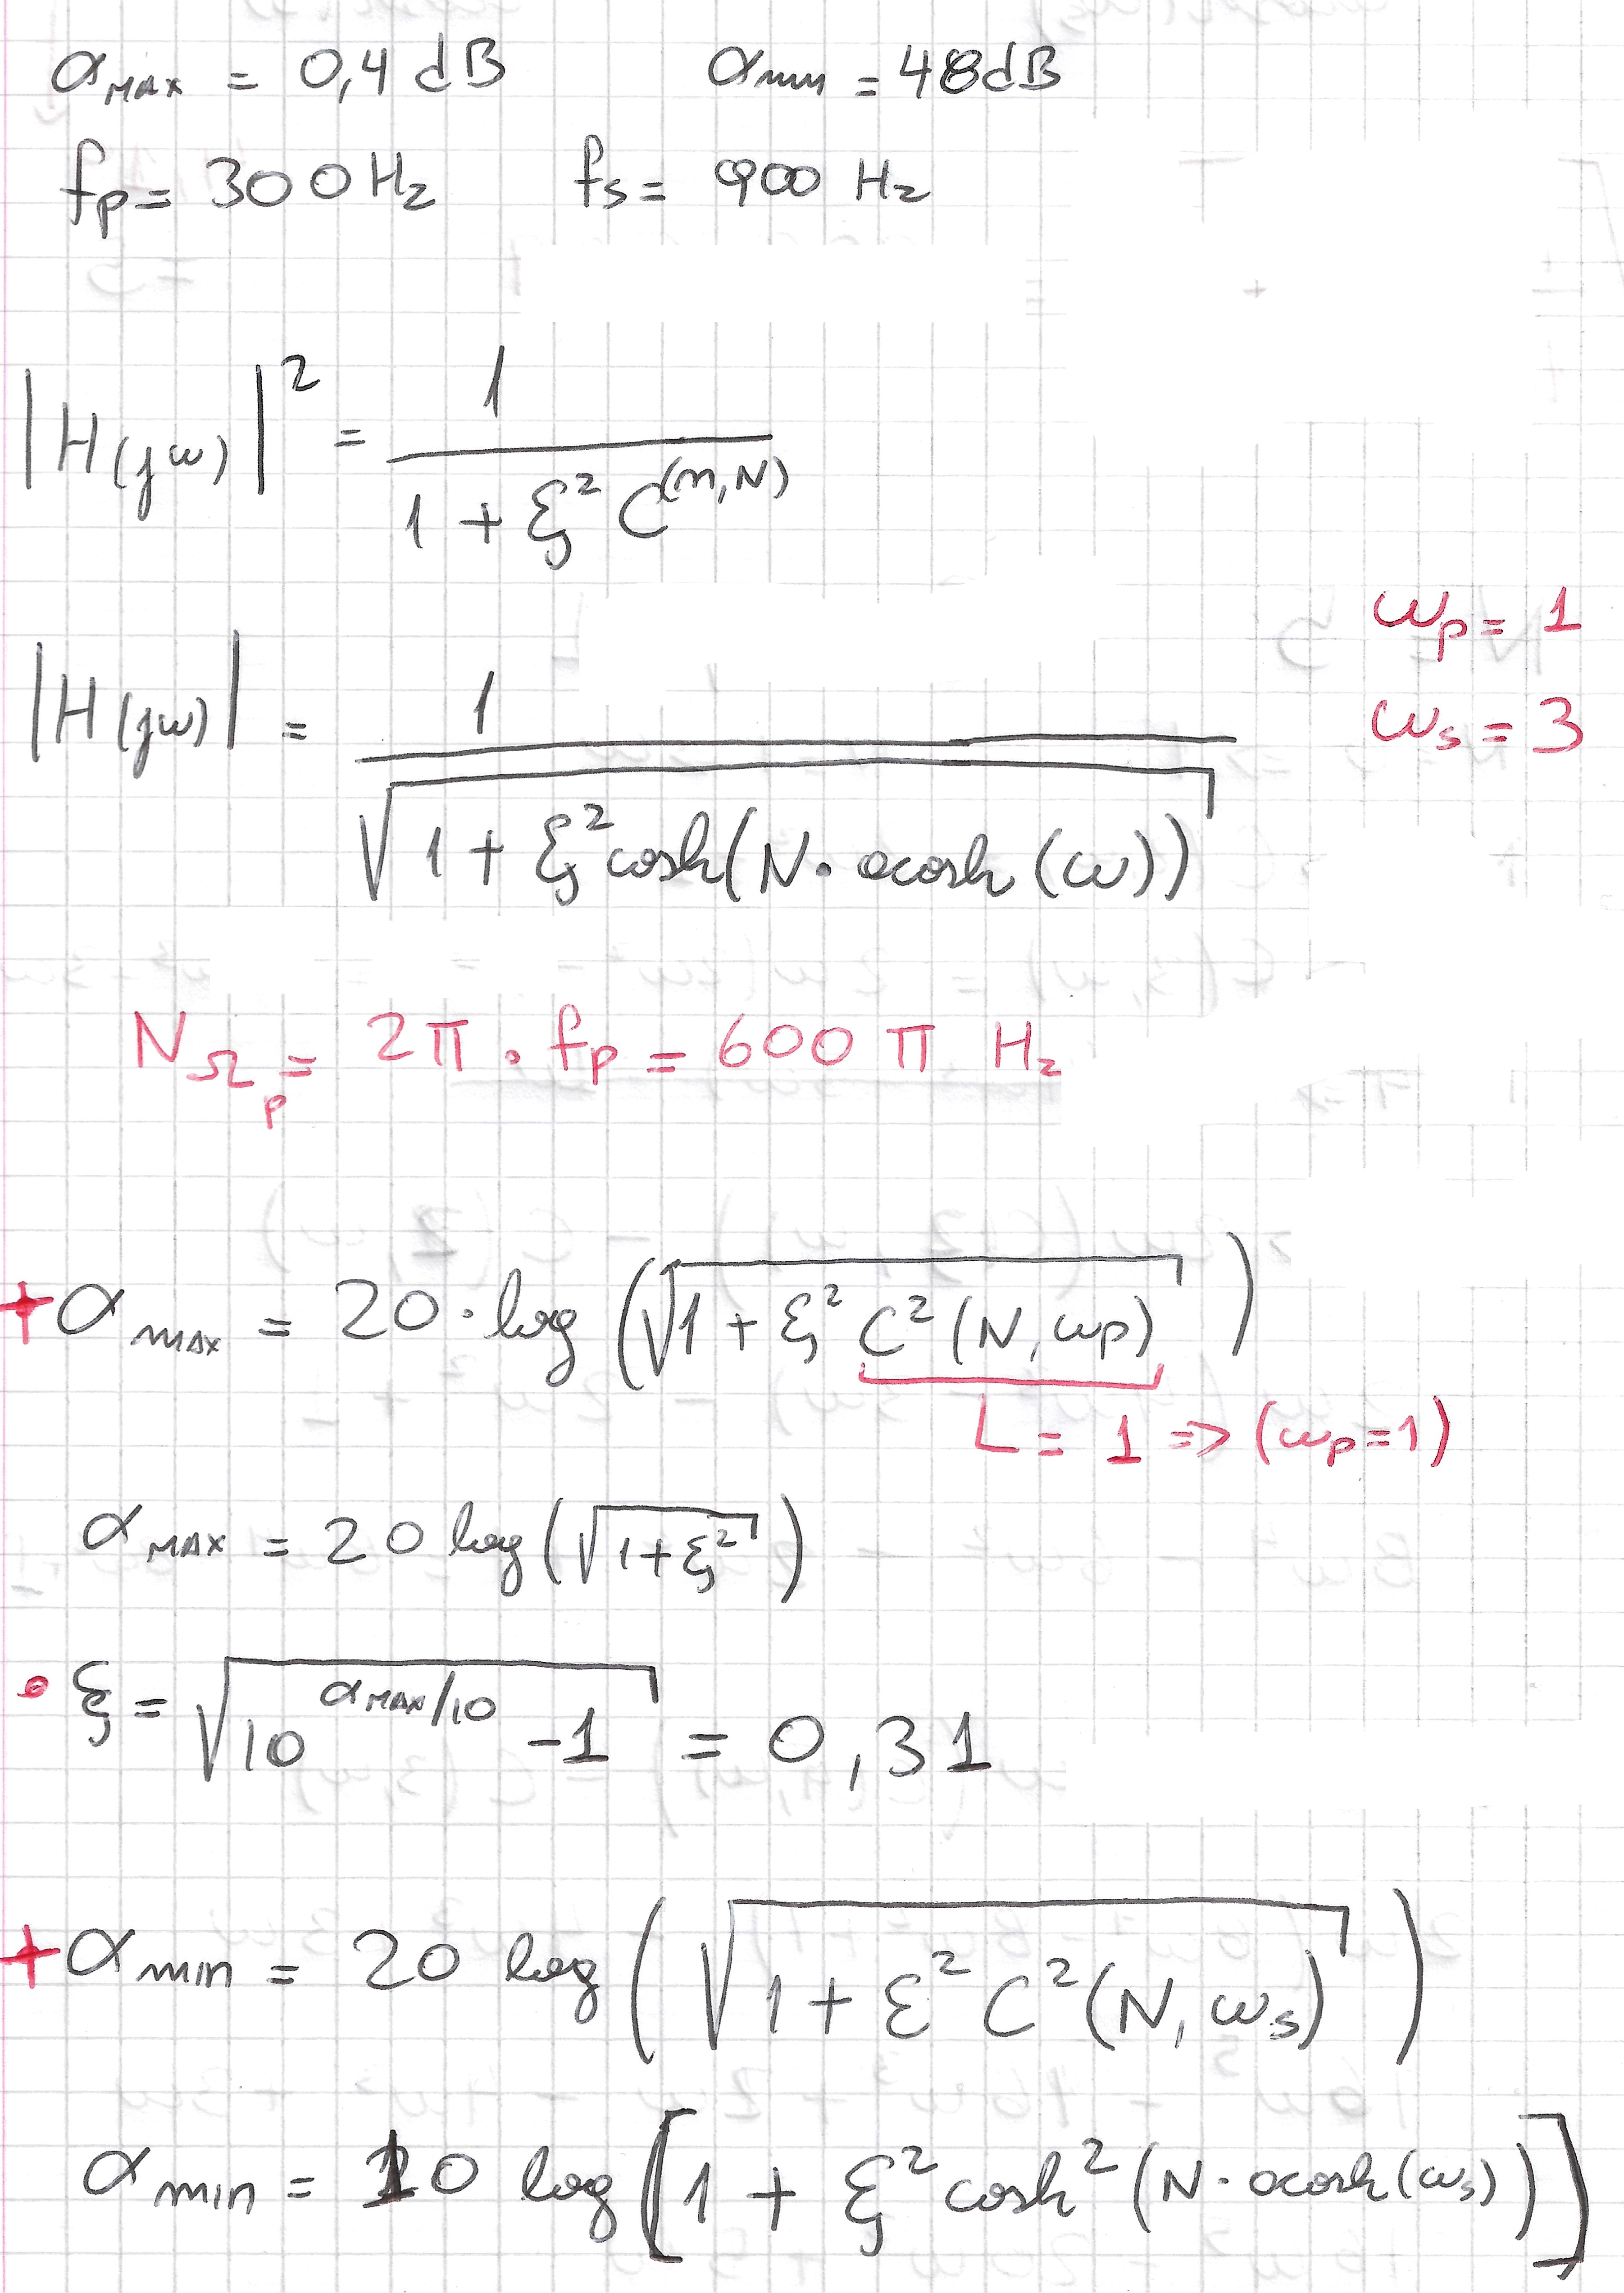 α_MAX = 0,4 dB    α_min = 48dB
f_p = 300 Hz    f_s = 900 Hz
|H(jω)|² = 1 / (1 + ξ² C^(n,N))
ω_p = 1
|H(jω)| = 1 / √(1 + ξ² cosh(N · acosh(ω)))
ω_s = 3
N_Ω_p = 2π · f_p = 600 π Hz
+ α_MAX = 20 · log(√(1 + ξ² C²(N, ωp)))
L = 1 => (ω_p = 1)
α_MAX = 20 log(√(1 + ξ²))
• ξ = √(10^(α_MAX/10) - 1) = 0,31
+ α_min = 20 log(√(1 + ε² C²(N, ω_s)))
α_min = 10 log[1 + ξ² cosh²(N · acosh(ω_s))]